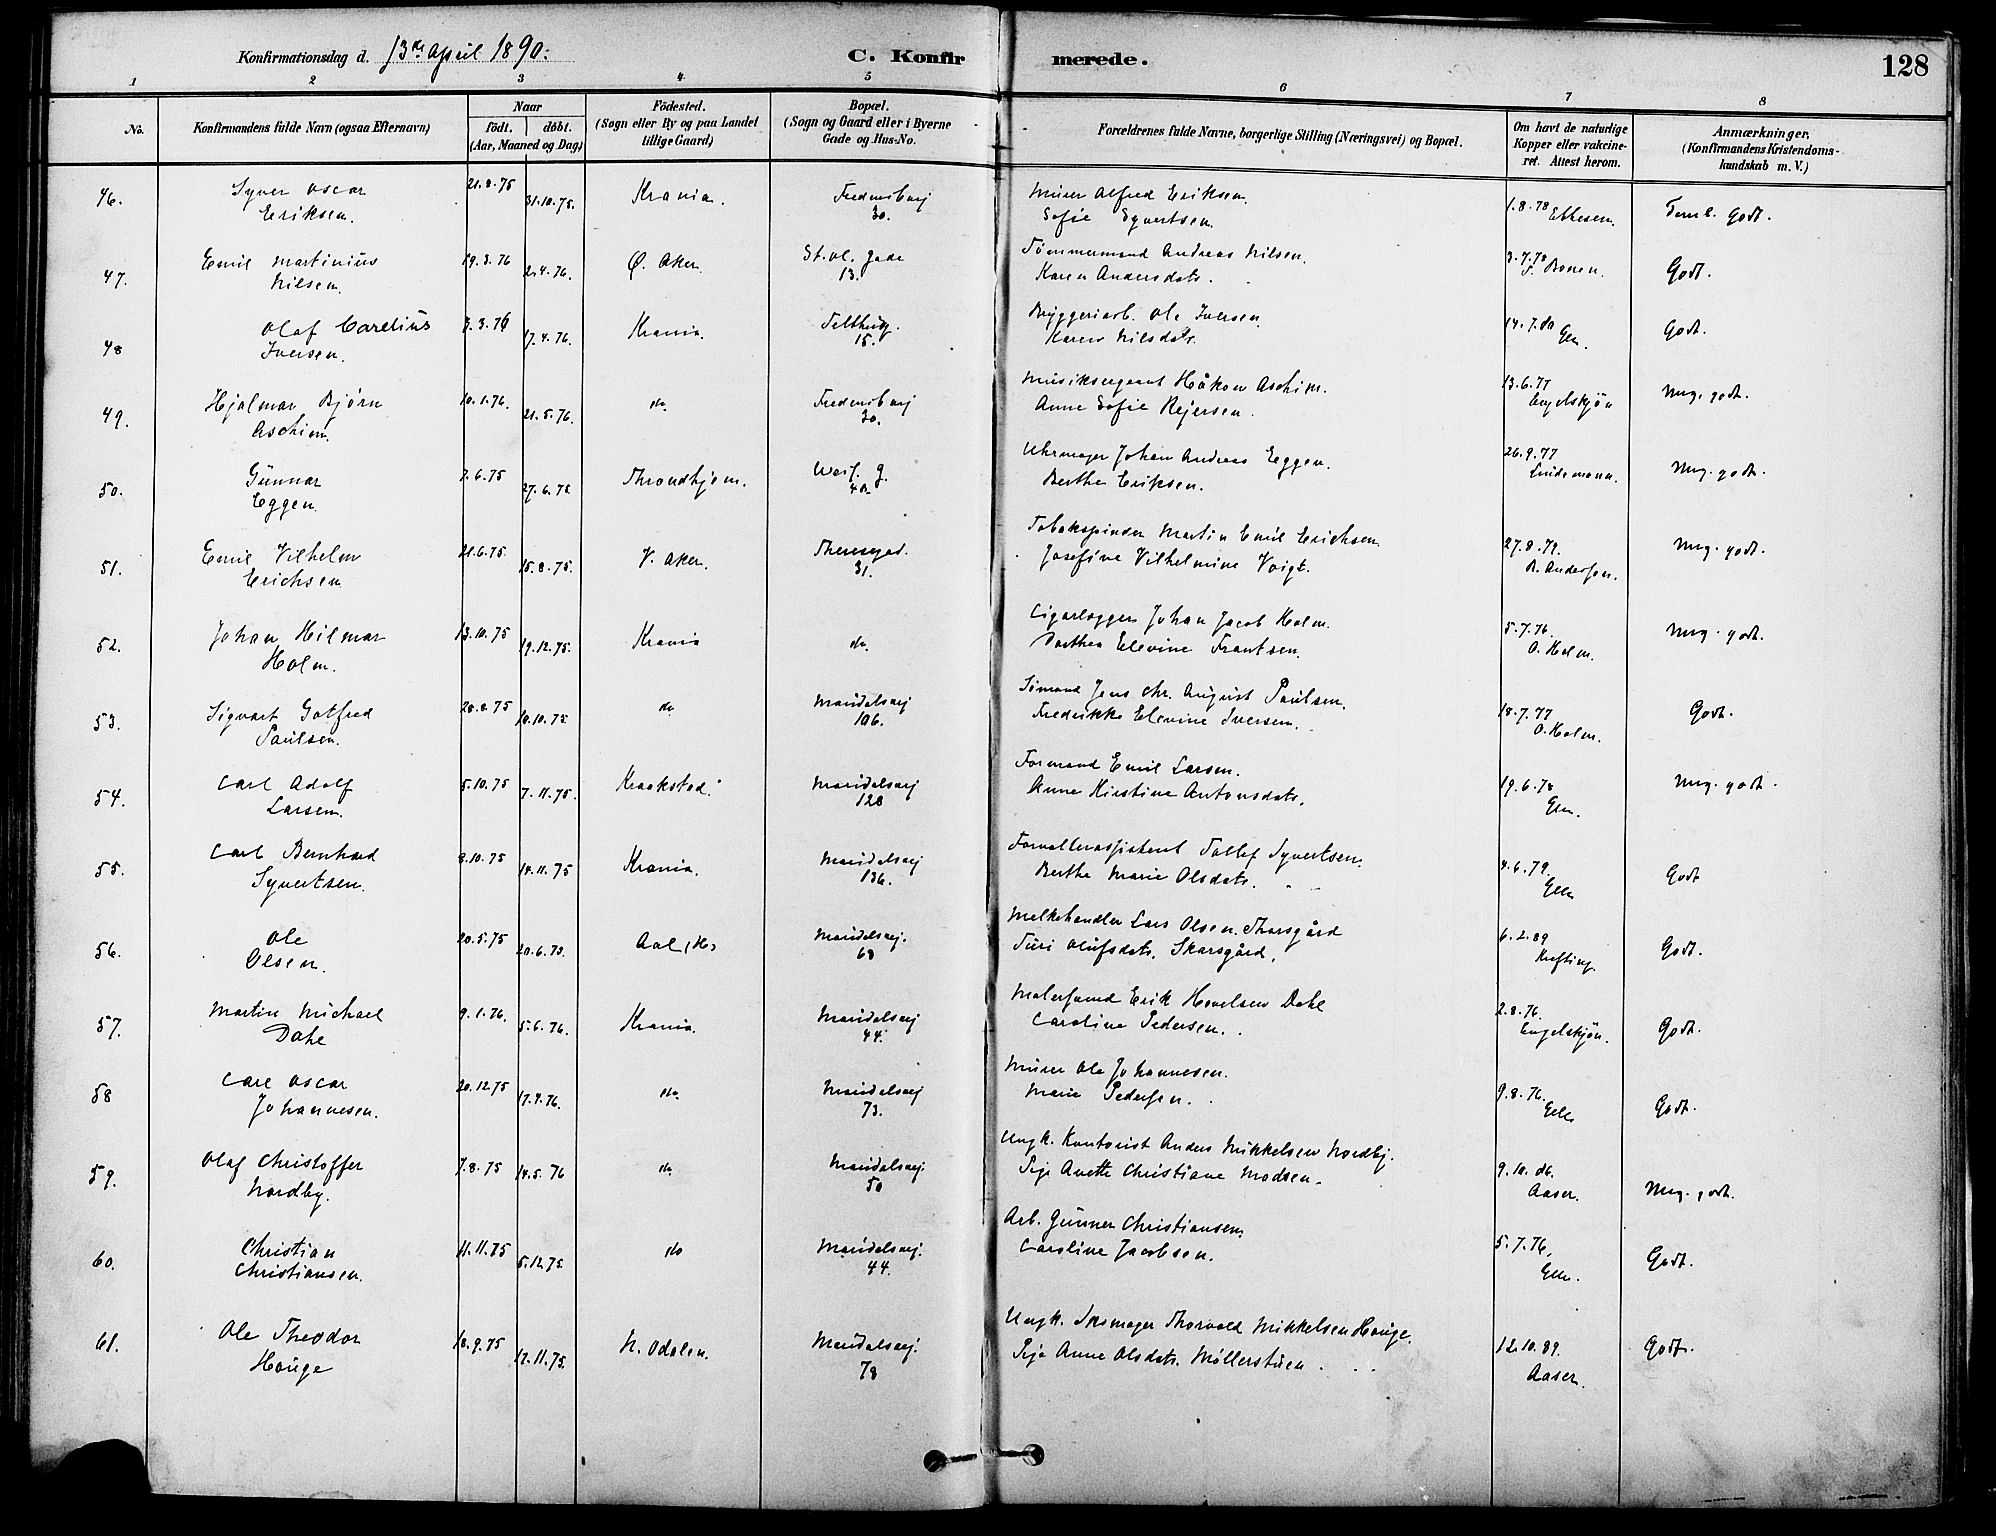 Konfirmationsdag d. 13de April 1890.
C. Konfirmerede.
128
1 2 3 4 5 6 7 8
No.
Konfirmandens fulde Navn (ogsaa Efternavn)
Naar
født. døbt.
(Aar, Maaned og Dag)
Fødested.
(Sogn eller By og paa Landet
tillige Gaard)
Bopæl.
(Sogn og Gaard eller i Byerne
Gade og Hus-No.
Forældrenes fulde Navne, borgerlige Stilling (Næringsvei) og Bopæl.
Om havt de naturlige
Kopper eller vakcine-
ret. Attest herom.
Anmærkninger.
(Konfirmandens Kristendoms-
kundskab m. V.)
46. Syver Oscar Eriksen. 21.8.75 31.10.75. Krania. Fredensborgvej 30.
Murer Alfred Eriksen.
Sofie Syvertsen.
1.8.78 Temm. Godt.
47. Emil Martinius Nilsen. 19.3.76 2.4.76. Ø. Aker. St. Ol. gade 13.
Tømmermand Andreas Nilsen.
Karen Andersdatr.
3.7.78 Godt.
48 Olaf Carelius Iversen. 3.3.76 17.4.76. Krania. Telthusg. 15.
Bryggeriarb. Ole Iversen.
Karen Nilsdatr.
14.7.80 Godt.
49. Hjalmar Bjørn Aschim. 10.1.76. 21.5.76. do. 30.
Musiksergeant Håkon Aschim.
Anne Sofie Rejersen.
13.6.77 Engelskjøn Mg. godt.
50. Gunnar Eggen. 7.6.75 27.6.75. Throndhjem.
Uhrmager Johan Andreas Eggen.
Berthe Eriksen.
26.9.77 Lindemann. Mg. godt.
51. Emil Vilhelm Erichsen 21.6.75. 15.8.75. V. Aker. Theresegad. 31.
Tobakspinder Martin Emil Erichsen.
Josefine Vilhelmine Voigt.
27.8.79. A. Andersen. Mg. godt.
52. Johan Hilmar Holm. 13.10.75 19.12.75. Krania do.
Cigarlægger Johan Jacob Holm.
Dorthea Elevine Frantsen.
5.7.76. O. Holm. Mg. godt.
53. Sigvart Gotfred Paulsen. 28.8.75 10.10.75. do Maridalsvej 106.
Sømand Jens Chr. August Paulsen.
Frederikke Elevine Iversen.
18.7.77 O. Holm. Godt.
54. Carl Adolf Larsen. 5.10.75 7.11.75. Kraakstad. Maridalsvej 128
Formand Emil Larsen.
Anne Kirstine Antonsdatr.
19.6.78 Mg. godt.
55. Carl Bernhard Syvertsen. 8.10.75 14.11.75 Krania. Maridalsvej 136.
Forvalterassistent Tollef Syvertsen.
Berthe Marie Olsdatr.
4.6.79. Godt
56. Ole Olsen. 20.5.75 20.6.75. Aal (H) Maridalsvej. 68
Melkehandler Lars Olsen Thorsgård
Turi Olufsdatr. Skarsgård.
6.2.89 Krefting. Godt.
57. Martin Michael Dahl 9.1.76. 5.6.76. Krania. Maridalsvej 44.
Malersvend Erik Hovelsen Dahl
Caroline Pedersen.
2.8.76. Engelskjøn. Godt.
58 Carl Oscar Johannesen. 20.12.75 17.9.76. do. Maridalsvej 73.
Murer Ole Johannesen.
Marie Pedersen.
9.8.76. Godt.
59. Olaf Christoffer Nordby. 7.8.75 14.5.76 do Maridalsvej. 50
Ungk. Kontorist Anders Mikkelsen Nordby.
Pige Anette Christiane Madsen.
9.10.86. Aaser. Mg. godt.
60. Christian Christiansen. 11.11.75 5.12.75. do Maridalsvej. 44.
Arb. Gunner Christiansen.
Caroline Jacobsen.
5.7.76. Godt.
61. Ole Theodor Houge 18.9.75 12.11.75. N. Odalen. Maridalsvej. 78
Ungk. Thorvald Mikkelsen Houge.
Pige Anne Olsdatr. Møllerstuen.
12.10.89. Aaser. Godt.